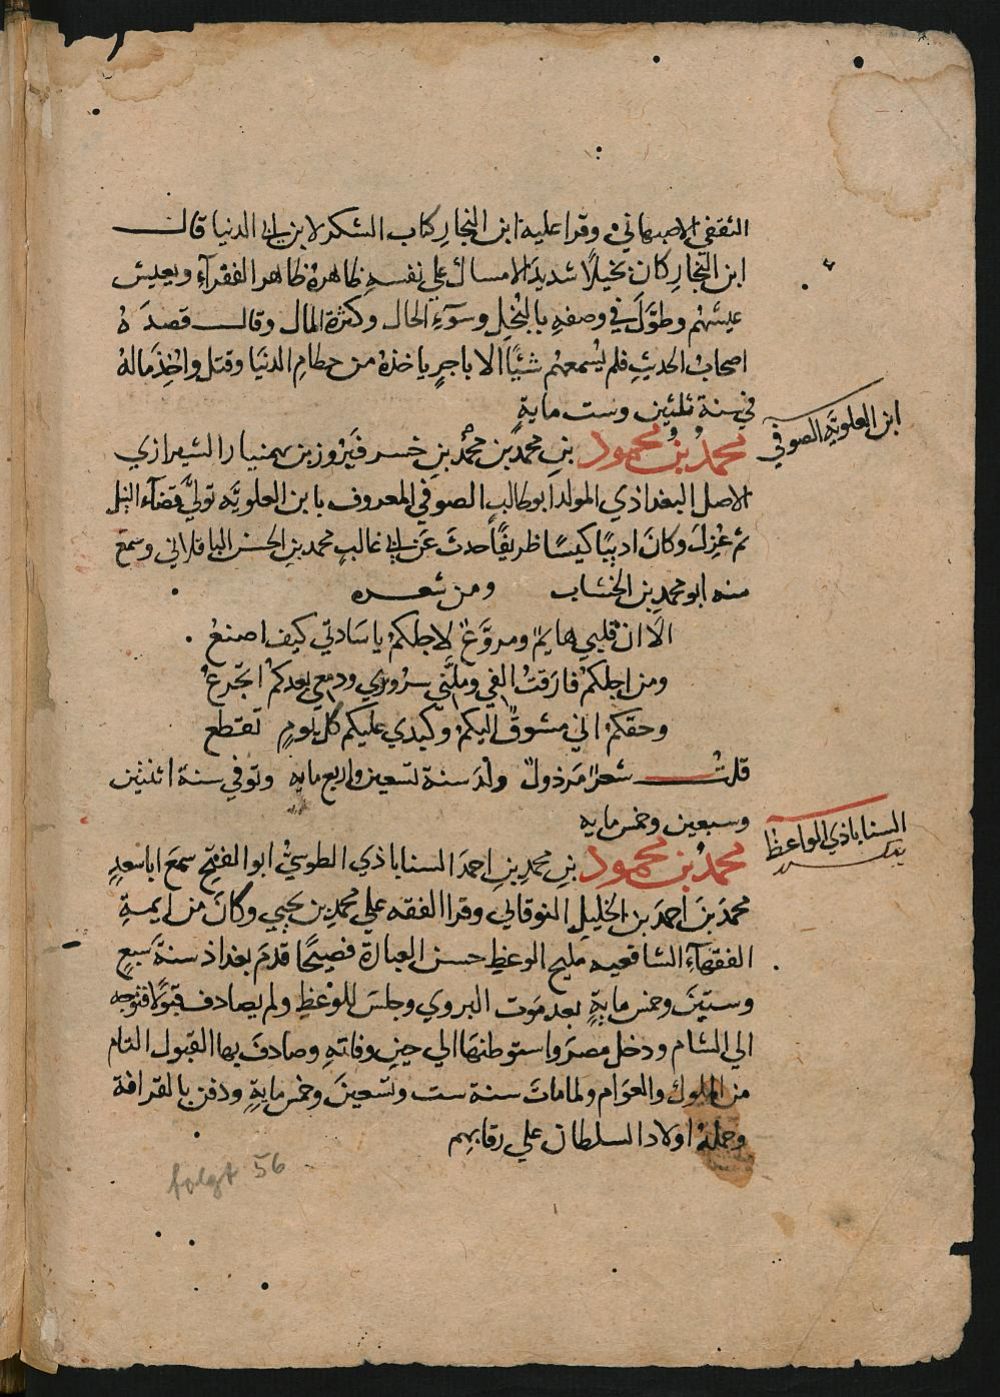 الثقفي الاصبهاني وقرا عليه ابن النجارِ كتاب الشكر لابن ابي الدنيا قالــــ
ابن النّجارِ كانَ بخيلًا شديدَ الامساك علي نفسهِ ظاهرهُ ظاهر الفقرآءِ ويعيش
عيشهُم وطوَّلَ في وصفهِ بالبُخلِ وسوءِ الحال وكثرة المال وقالــ قصدَهُ
اصحابُ الحديثِ فلم يُسمعهُم شيئًا الا باجرٍ ياخذهُ من حطامِ الدنيا وقتل واُخِذَ مالهُ
في سنة ثلثين وست مايةٍ
ابن العلويَّه الصوفي
محمدُ بنُ محمود بنِ محمد بن محمَّد بنِ خسرفَيْروز بن بهمنيار الشيرازي
الاصل البغداذي المولد ابو طالب الصوفي المعروف بابن العلويَّه تولَّي قضآءَ النيل
ثم عُزِلَ وكانَ اديبًا كيسًا ظريفًا حدثَ عَن ابي غالبٍ محمد بنِ الحسن الباقلاني وسمعَ
منه ابو محمدِ بن الخشاب ومن شعــره
الَا ان قلبي هايمٌ ومروَّعٌ لاجلكمُ يا سَادتي كيفَ اصنعُ
ومن اجلكمُ فارَقتُ الفي وملَّني سرُوري ودمعي بعدكمُ اتجرعُ
وحقكمُ اني مشوقٌ اليكمُ وكبدي عليكم كلَّ يومٍ تقطع
قلتُــــ شعرٌ مَرذولٌ ولدَ سنة تسعين واربع مايه وتوفي سنة اثنتين
وسبعين وخمس مايه
السناباذي الواعظ
محمدُ بنُ محمود بنِ محمدِ بنِ احمدَ السناباذي الطوسيُّ ابو الفتحِ سمعَ ابا سعدٍ
محمدَ بنَ احمدَ بن الخليلِ النوقاني وقرا الفقه علي محمدِ بن يحيي وكانَ من ايمةِ
الفقهآءِ الشافعيه مليح الوعظِ حسن العبارة فصيحًا قدمَ بغداذ سنة سبعٍ
وستينَ وخمس مايةٍ بعد مَوت البروي وجلسَ للوَعْظِ ولم يصادف قبولًا فتوجه
الي الشام ودخل مصرَ واستوطنهَا الي حينِ وفاتهِ وصادفَ بها القبول التام
من الملوك والعوَام ولما ماتَ سنة ست وتسعينَ وخمس مايةٍ ودفن بالقرافة
وحملهُ اولاد السلطان علي رقابهم
folgt 56